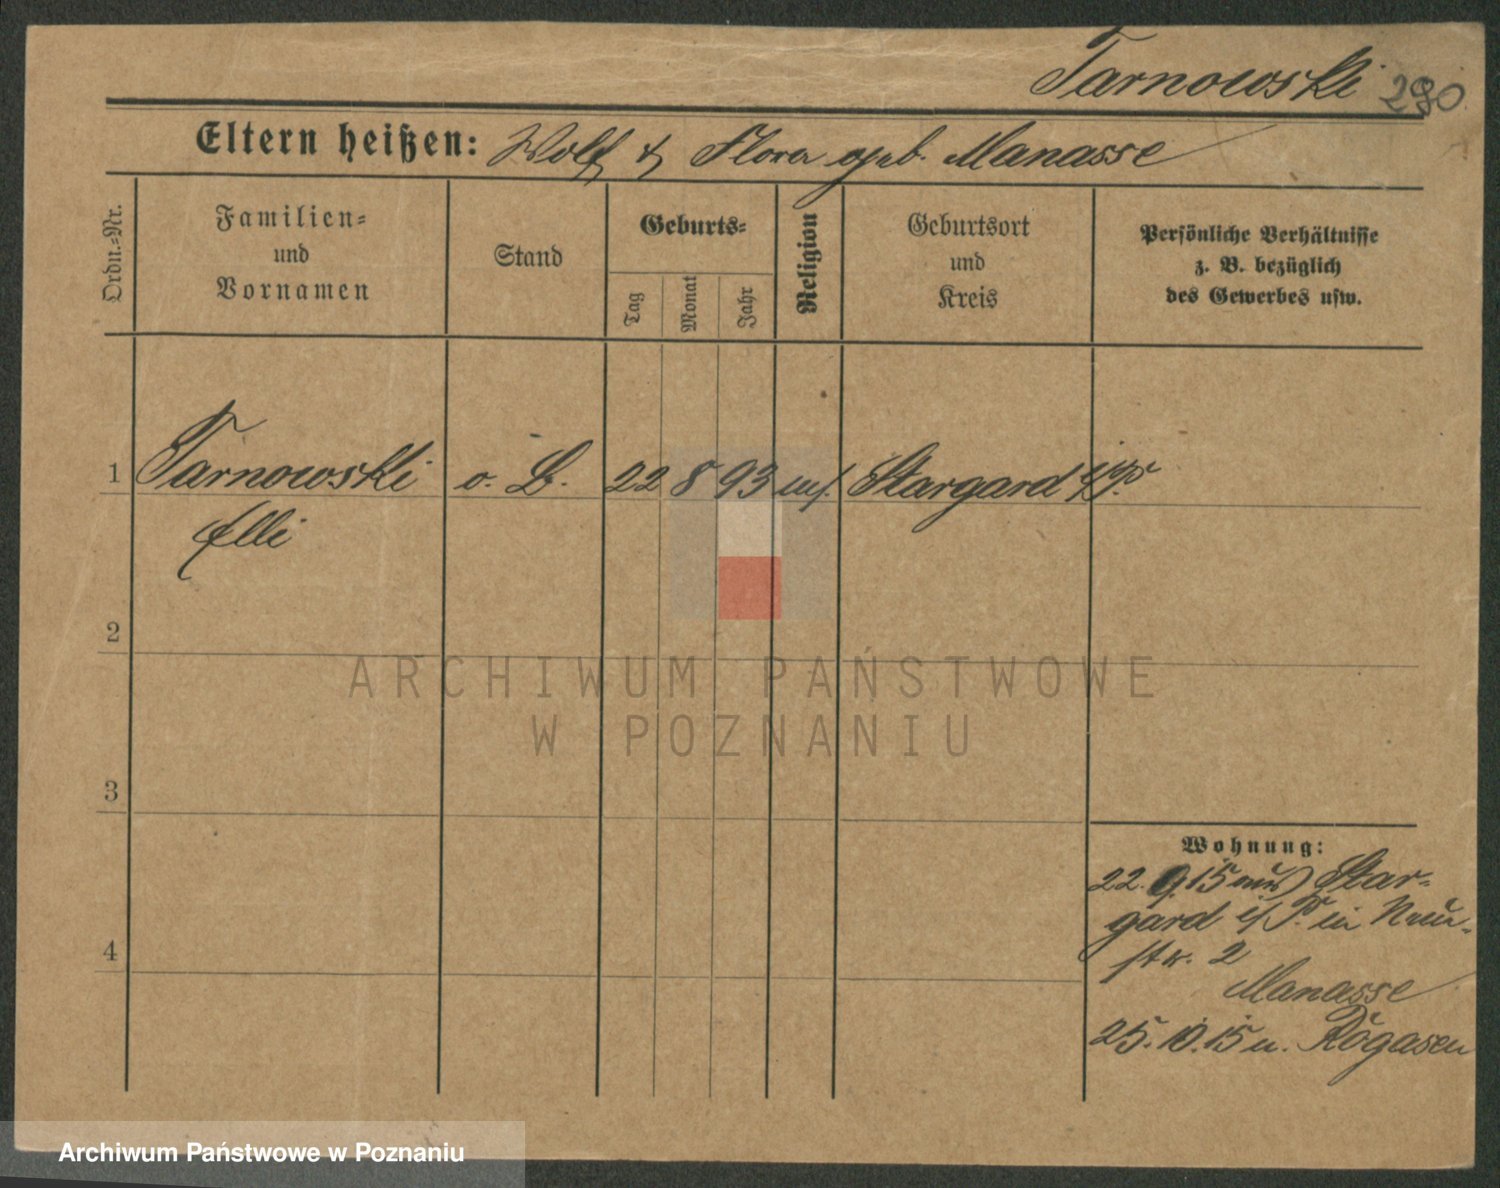 Tarnowski 290
Eltern heißen: Wolf & Flora geb. Manasse
Ordn.-Nr.
Familien-
und
Vornamen
Stand
Geburts-
Tag
Monat
Jahr
Religion
Geburtsort
und
Kreis
Persönliche Verhältnisse
z. B. bezüglich
des Gewerbes usw.
1 Tarnowski o. B. 22 8 93 mos. Stargard i/P.
Elli
2
3
4
Wohnung:
22. 9. 15 aus Star-
gard i/P. in Neue-
str. 2
Manasse
25. 10. 15 n. Rogasen
ARCHIWUM PAŃSTWOWE
W POZNANIU
Archiwum Państwowe w Poznaniu